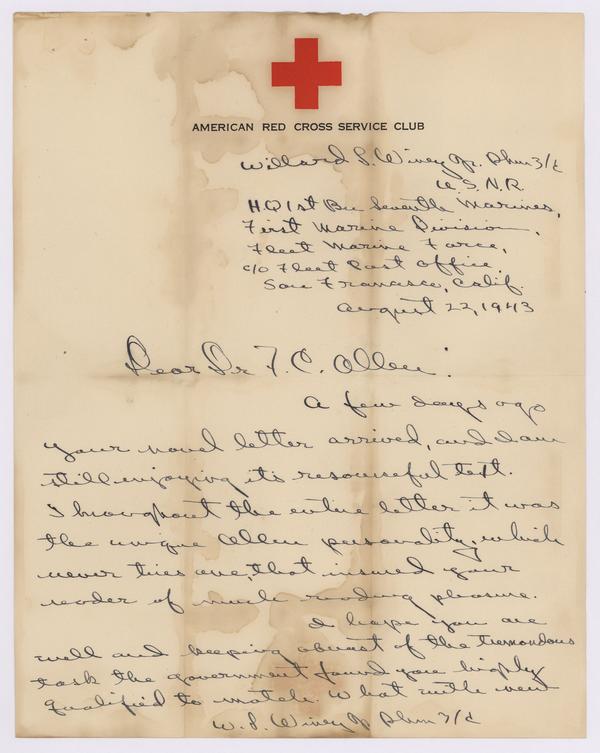 AMERICAN RED CROSS SERVICE CLUB
Willard S. Winey Jr. Phm 3/c
U.S.N.R.
H.Q 1st Bn Seventh Marines,
First Marine Division,
Fleet Marine Force,
c/o Fleet Post Office,
San Francisco, Calif.
August 22, 1943
Dear Dr T. C. Allen:
A few days ago
your novel letter arrived, and I am
still enjoying it's resourceful text.
Throughout the entire letter it was
the unique Allen personality, which
never tires one, that insured your
reader of much reading pleasure.
I hope you are
well and keeping abreast of the tremendous
task the government found you highly
qualified to match. What with new
W. S. Winey Jr Phm 3/c